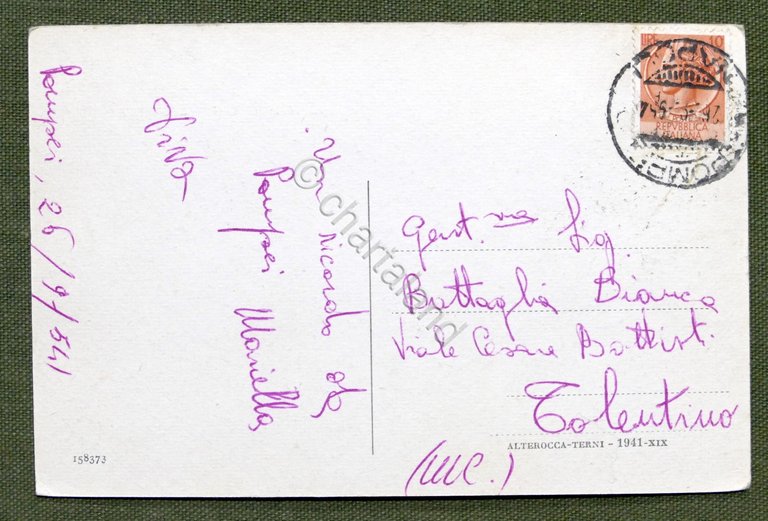 Pompei, 26/9/54
Un ricordo da
Pompei Mariella
Gent.ma Sig
Battaglia Bianca
Viale Cesare Battisti
Tolentino
(MC.)
158373
ALTEROCCA-TERNI - 1941-XIX
LIRE 10
REPVBBLICA
ITALIANA
© chartaland